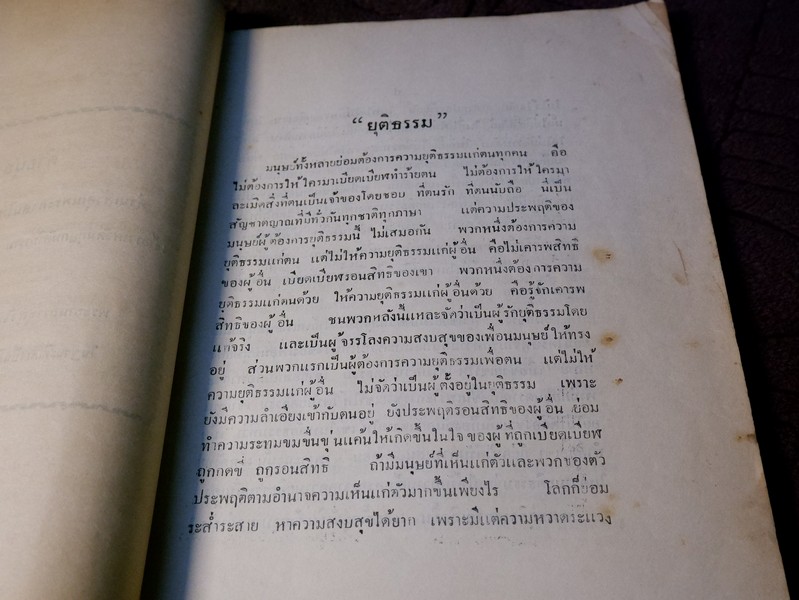 “ยุติธรรม”
มนุษย์ทั้งหลายย่อมต้องการความยุติธรรมแก่ตนทุกคน คือ
ไม่ต้องการให้ใครมาเบียดเบียฬทำร้ายตน ไม่ต้องการให้ใครมา
ละเมิดสิ่งที่ตนเป็นเจ้าของโดยชอบ ที่ตนรัก ที่ตนนับถือ นี่เป็น
สัญชาตญาณที่มีทั่วกันทุกชาติทุกภาษา แต่ความประพฤติของ
มนุษย์ผู้ต้องการยุติธรรมนี้ ไม่เสมอกัน พวกหนึ่งต้องการความ
ยุติธรรมแก่ตน แต่ไม่ให้ความยุติธรรมแก่ผู้อื่น คือไม่เคารพสิทธิ
ของผู้อื่น เบียดเบียฬรอนสิทธิของเขา พวกหนึ่งต้องการความ
ยุติธรรมแก่ตนด้วย ให้ความยุติธรรมแก่ผู้อื่นด้วย คือรู้จักเคารพ
สิทธิของผู้อื่น ชนพวกหลังนี้แหละจัดว่าเป็นผู้รักยุติธรรมโดย
แท้จริง และเป็นผู้จรรโลงความสงบสุขของเพื่อนมนุษย์ให้ทรง
อยู่ ส่วนพวกแรกเป็นผู้ต้องการความยุติธรรมเพื่อตน แต่ไม่ให้
ความยุติธรรมแก่ผู้อื่น ไม่จัดว่าเป็นผู้ตั้งอยู่ในยุติธรรม เพราะ
ยังมีความลำเอียงเข้ากับตนอยู่ ยังประพฤติรอนสิทธิของผู้อื่น ย่อม
ทำความระทมขมขื่นขุ่นแค้นให้เกิดขึ้นในใจของผู้ที่ถูกเบียดเบียฬ
ถูกกดขี่ ถูกรอนสิทธิ ถ้ามีมนุษย์ที่เห็นแก่ตัวและพวกของตัว
ประพฤติตามอำนาจความเห็นแก่ตัวมากขึ้นเพียงไร โลกก็ย่อม
ระส่ำระสาย หาความสงบสุขได้ยาก เพราะมีแต่ความหวาดระแวง